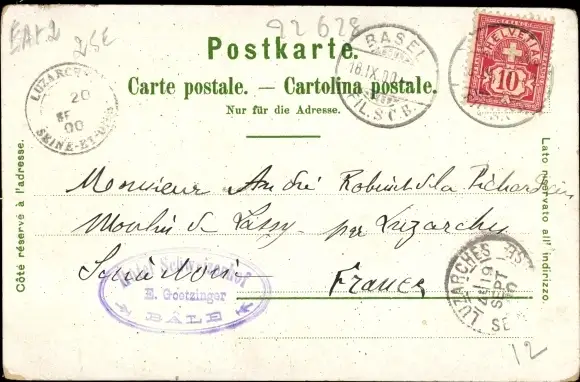 EAK2 25E
22628
Postkarte.
Carte postale. — Cartolina postale.
Nur für die Adresse.
BASEL
18.IX.00
FIL. S.C.B.
HELVETIA
10
LUZARCHES
20
SE
00
SEINE-ET-OISE
Côté réservé à l'adresse.
Lato riservato all' indirizzo.
Monsieur André Robinet de la
Moulin de Lassy par Luzarches
Seine et Oise
France
Hotel Schweizerhof
E. Goetzinger
BÂLE
LUZARCHES
19
SEPT
12